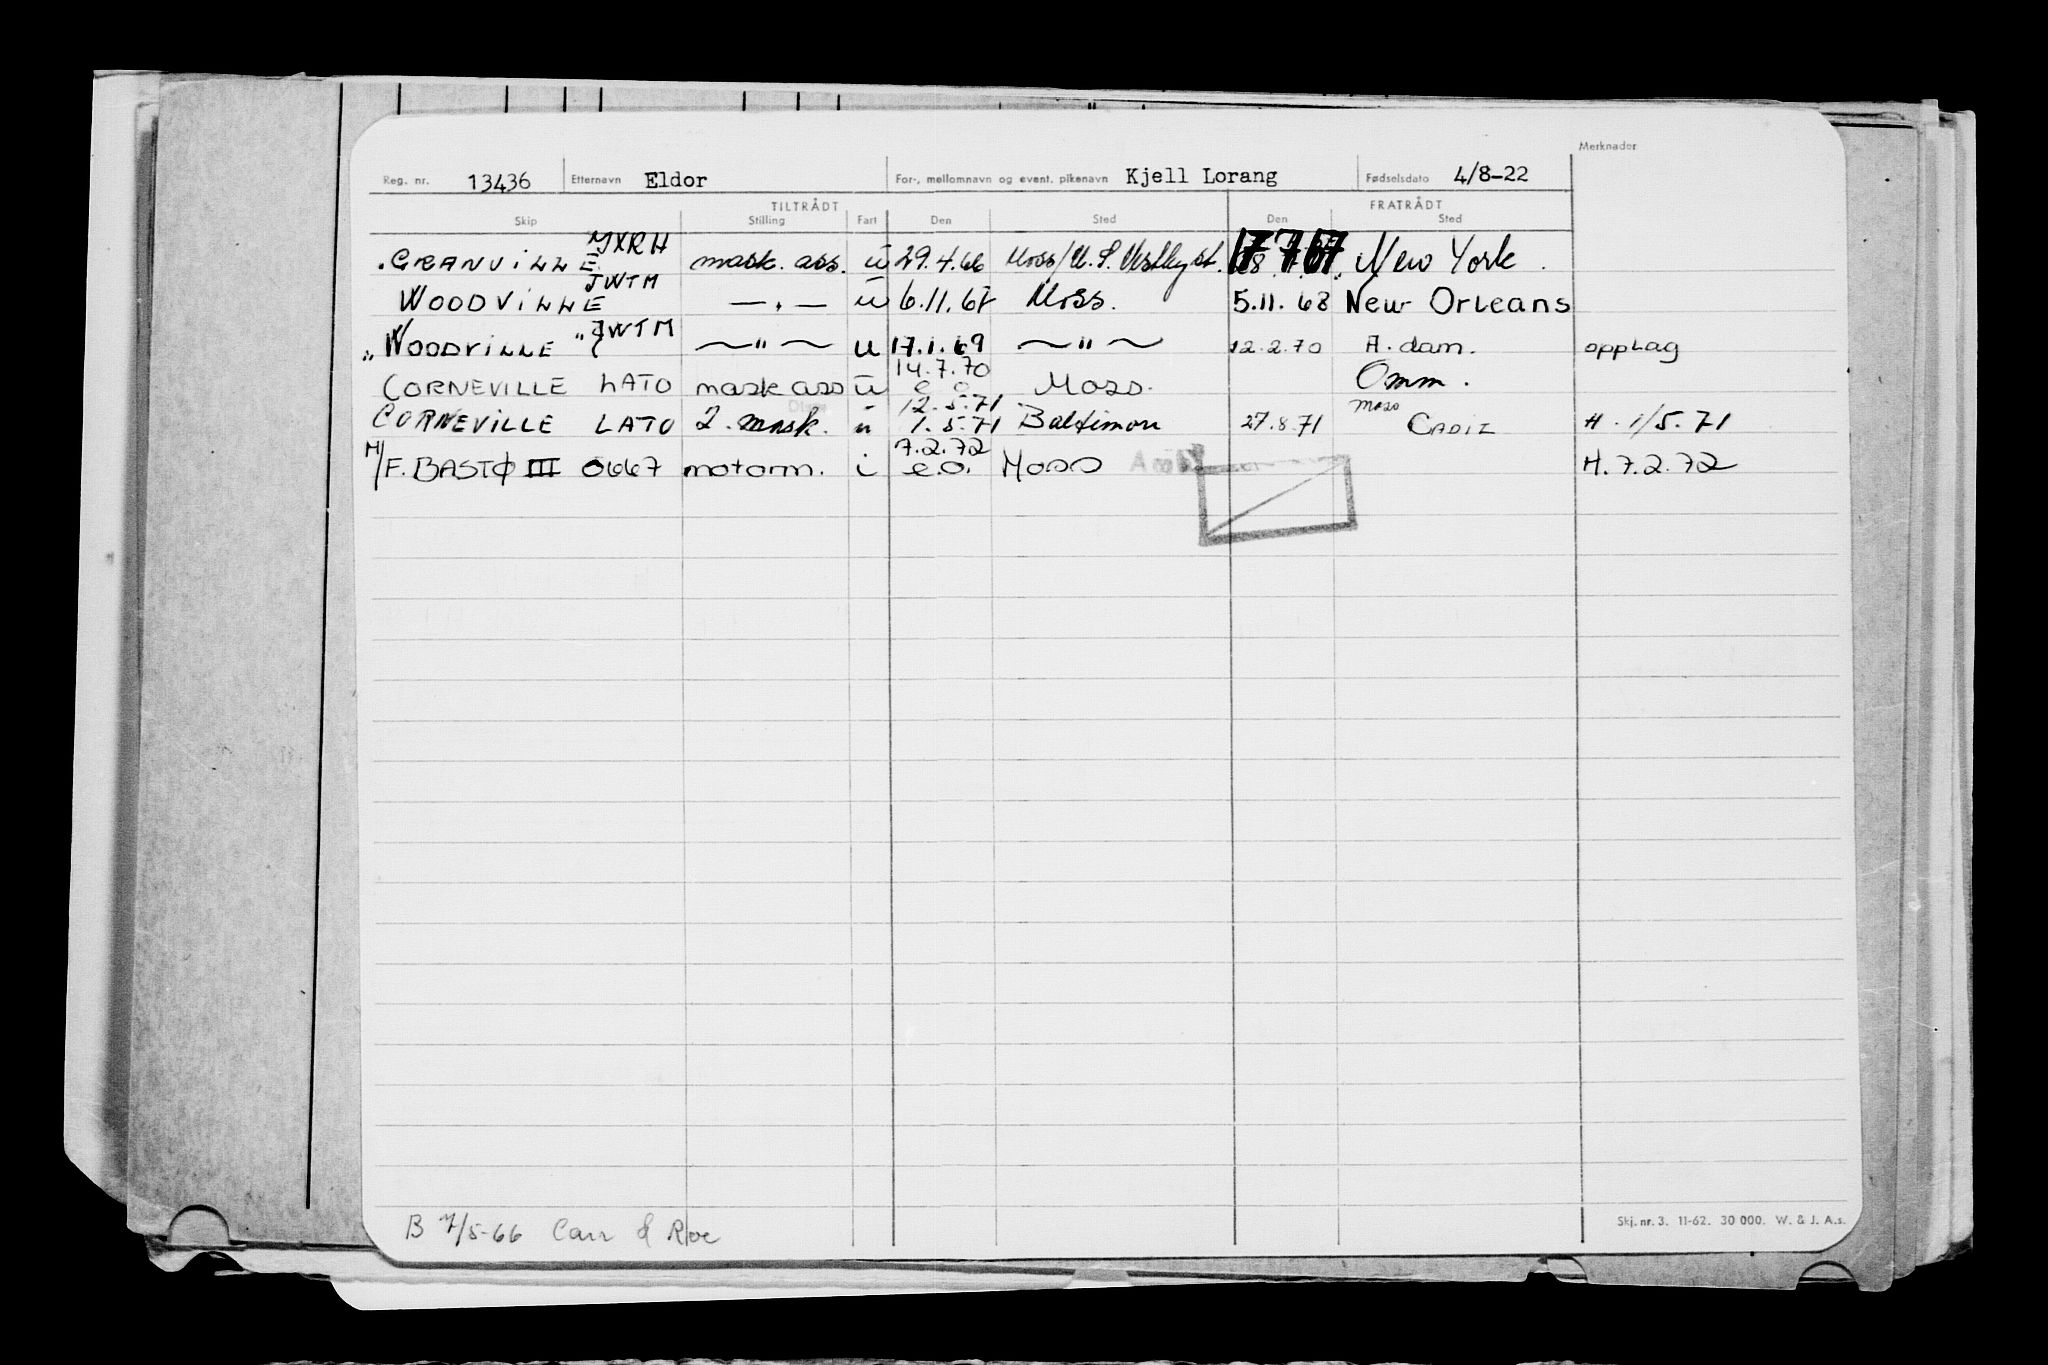 Merknader
Reg. nr. 13436 Etternavn Eldor For-, mellomnavn og event. pikenavn Kjell Lorang Fødselsdato 4/8-22
TILTRÅDT FRATRÅDT
Skip Stilling Fart Den Sted Den Sted
JXRH
GRANVILLE mask. ass. u 29.4.66 Moss/U.S. Vestkyst. 17 7 67 New York.
JWTM
WOODVILLE —„— u 6.11.67 Moss. 5.11.68 New Orleans
„ WOODVILLE „ JWTM ~"~ u 17.1.69 ~"~ 12.2.70 A.dam. opplag
14.7.70
CORNEVILLE LATO mask ass u e o Moss. Omm.
12.5.71 Moss
CORNEVILLE LATO 2. mask. u 1.5.71 Baltimore 27.8.71 CADIZ H. 1/5.71
7.2.72
M/F. BASTØ III 0667 motorm. i e.o. Moss H. 7.2.72
B 7/5-66 Carr & Roe
Skj. nr. 3. 11-62. 30 000. W. & J. A.s.